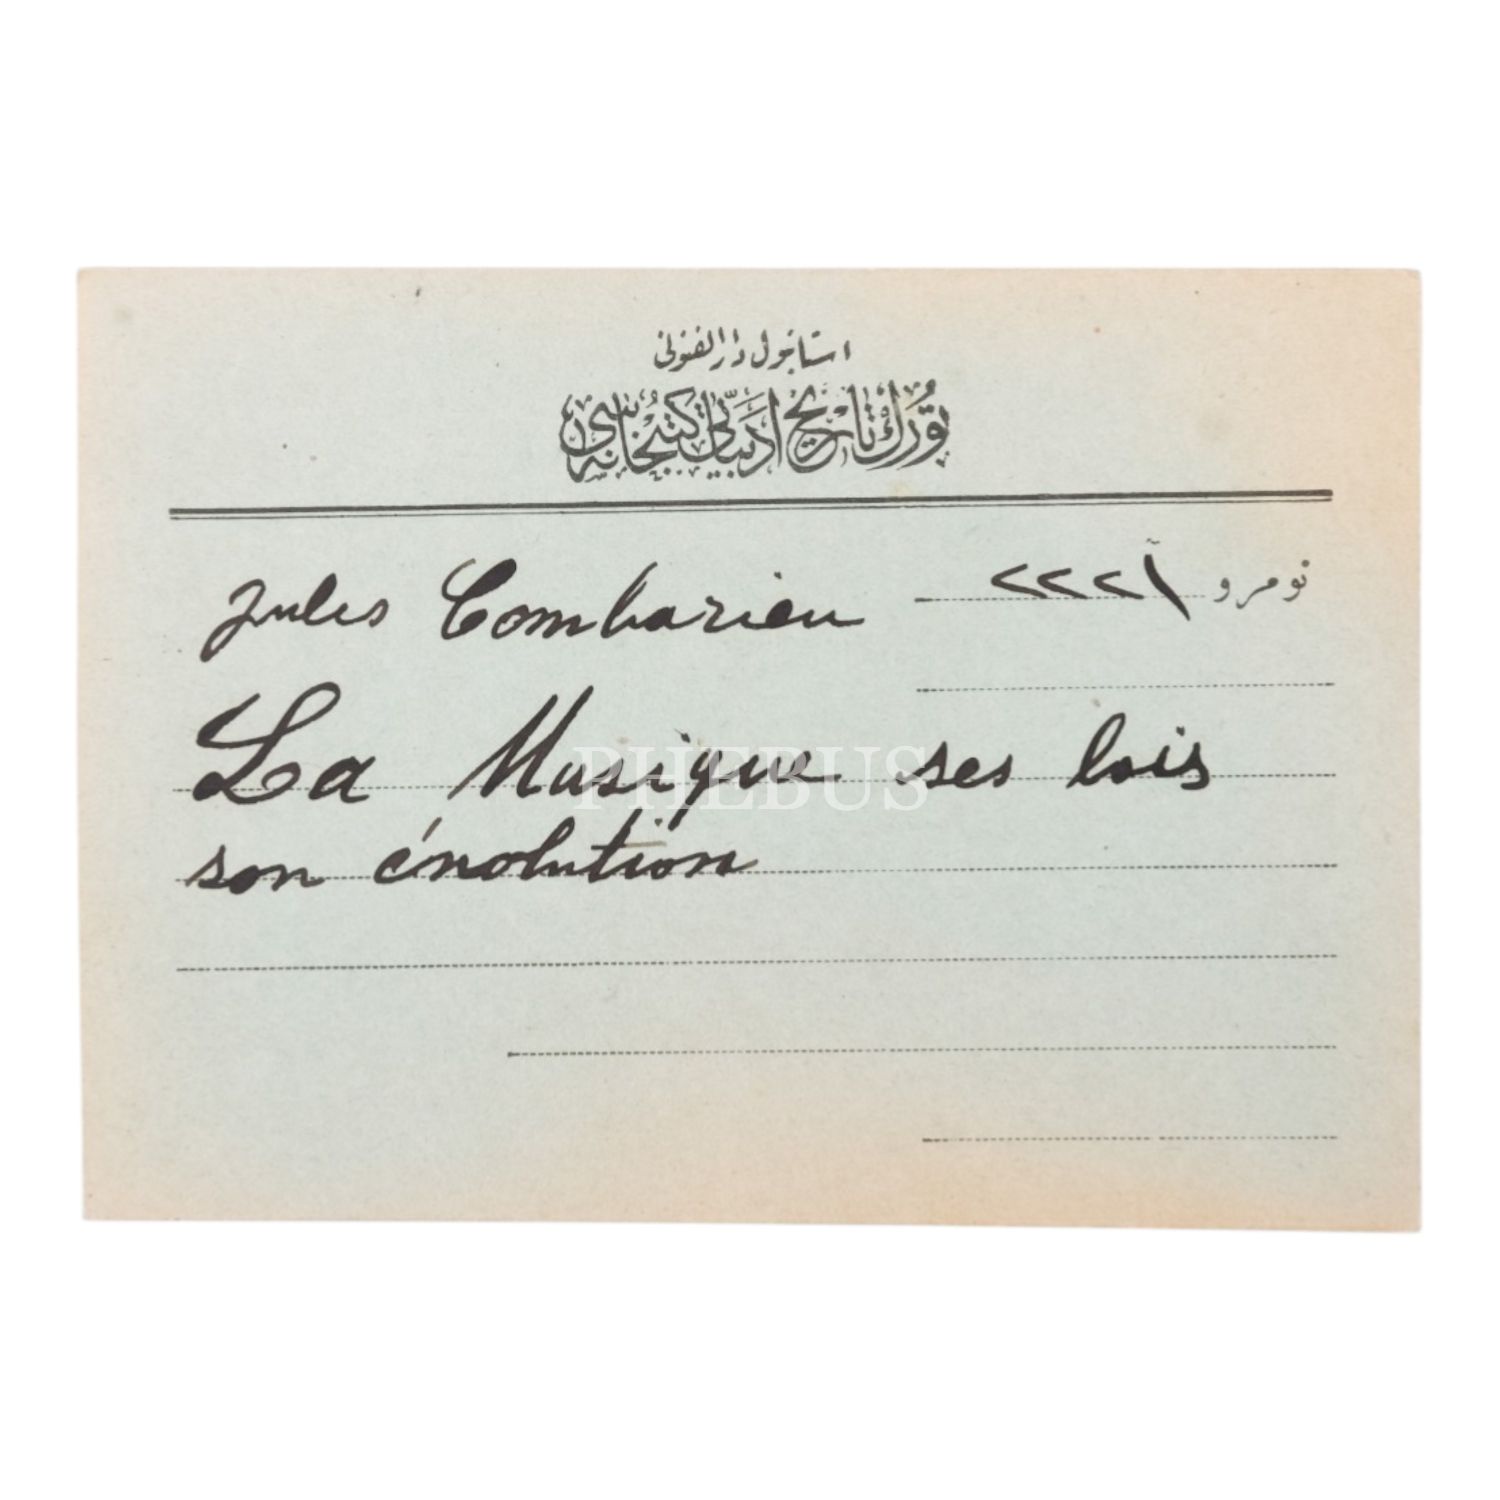 استانبول دار الفنونی
تورك تاریخ ادبیاتی کتبخانه سی
Jules Combarieu
نومرو
La Musique ses lois
son évolution
PHEBUS